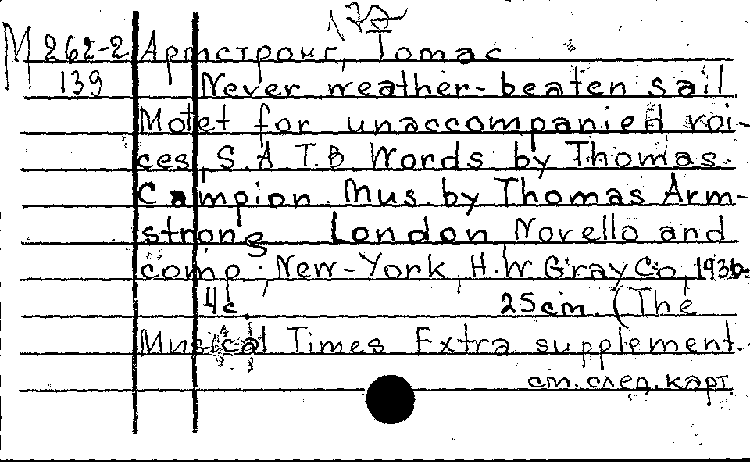 М 262-2 Армстронг, Томас
139 Never weather-beaten sail
Motet for unaccompanied voi-
ces, S.A.T.B. Words by Thomas
Campion. Mus. by Thomas Arm-
strong London Novello and
comp; New-York, H.W. Gray Co, 1936.
4 с. 25 cm. (The
Musical Times Extra supplement.
см. след. карт.